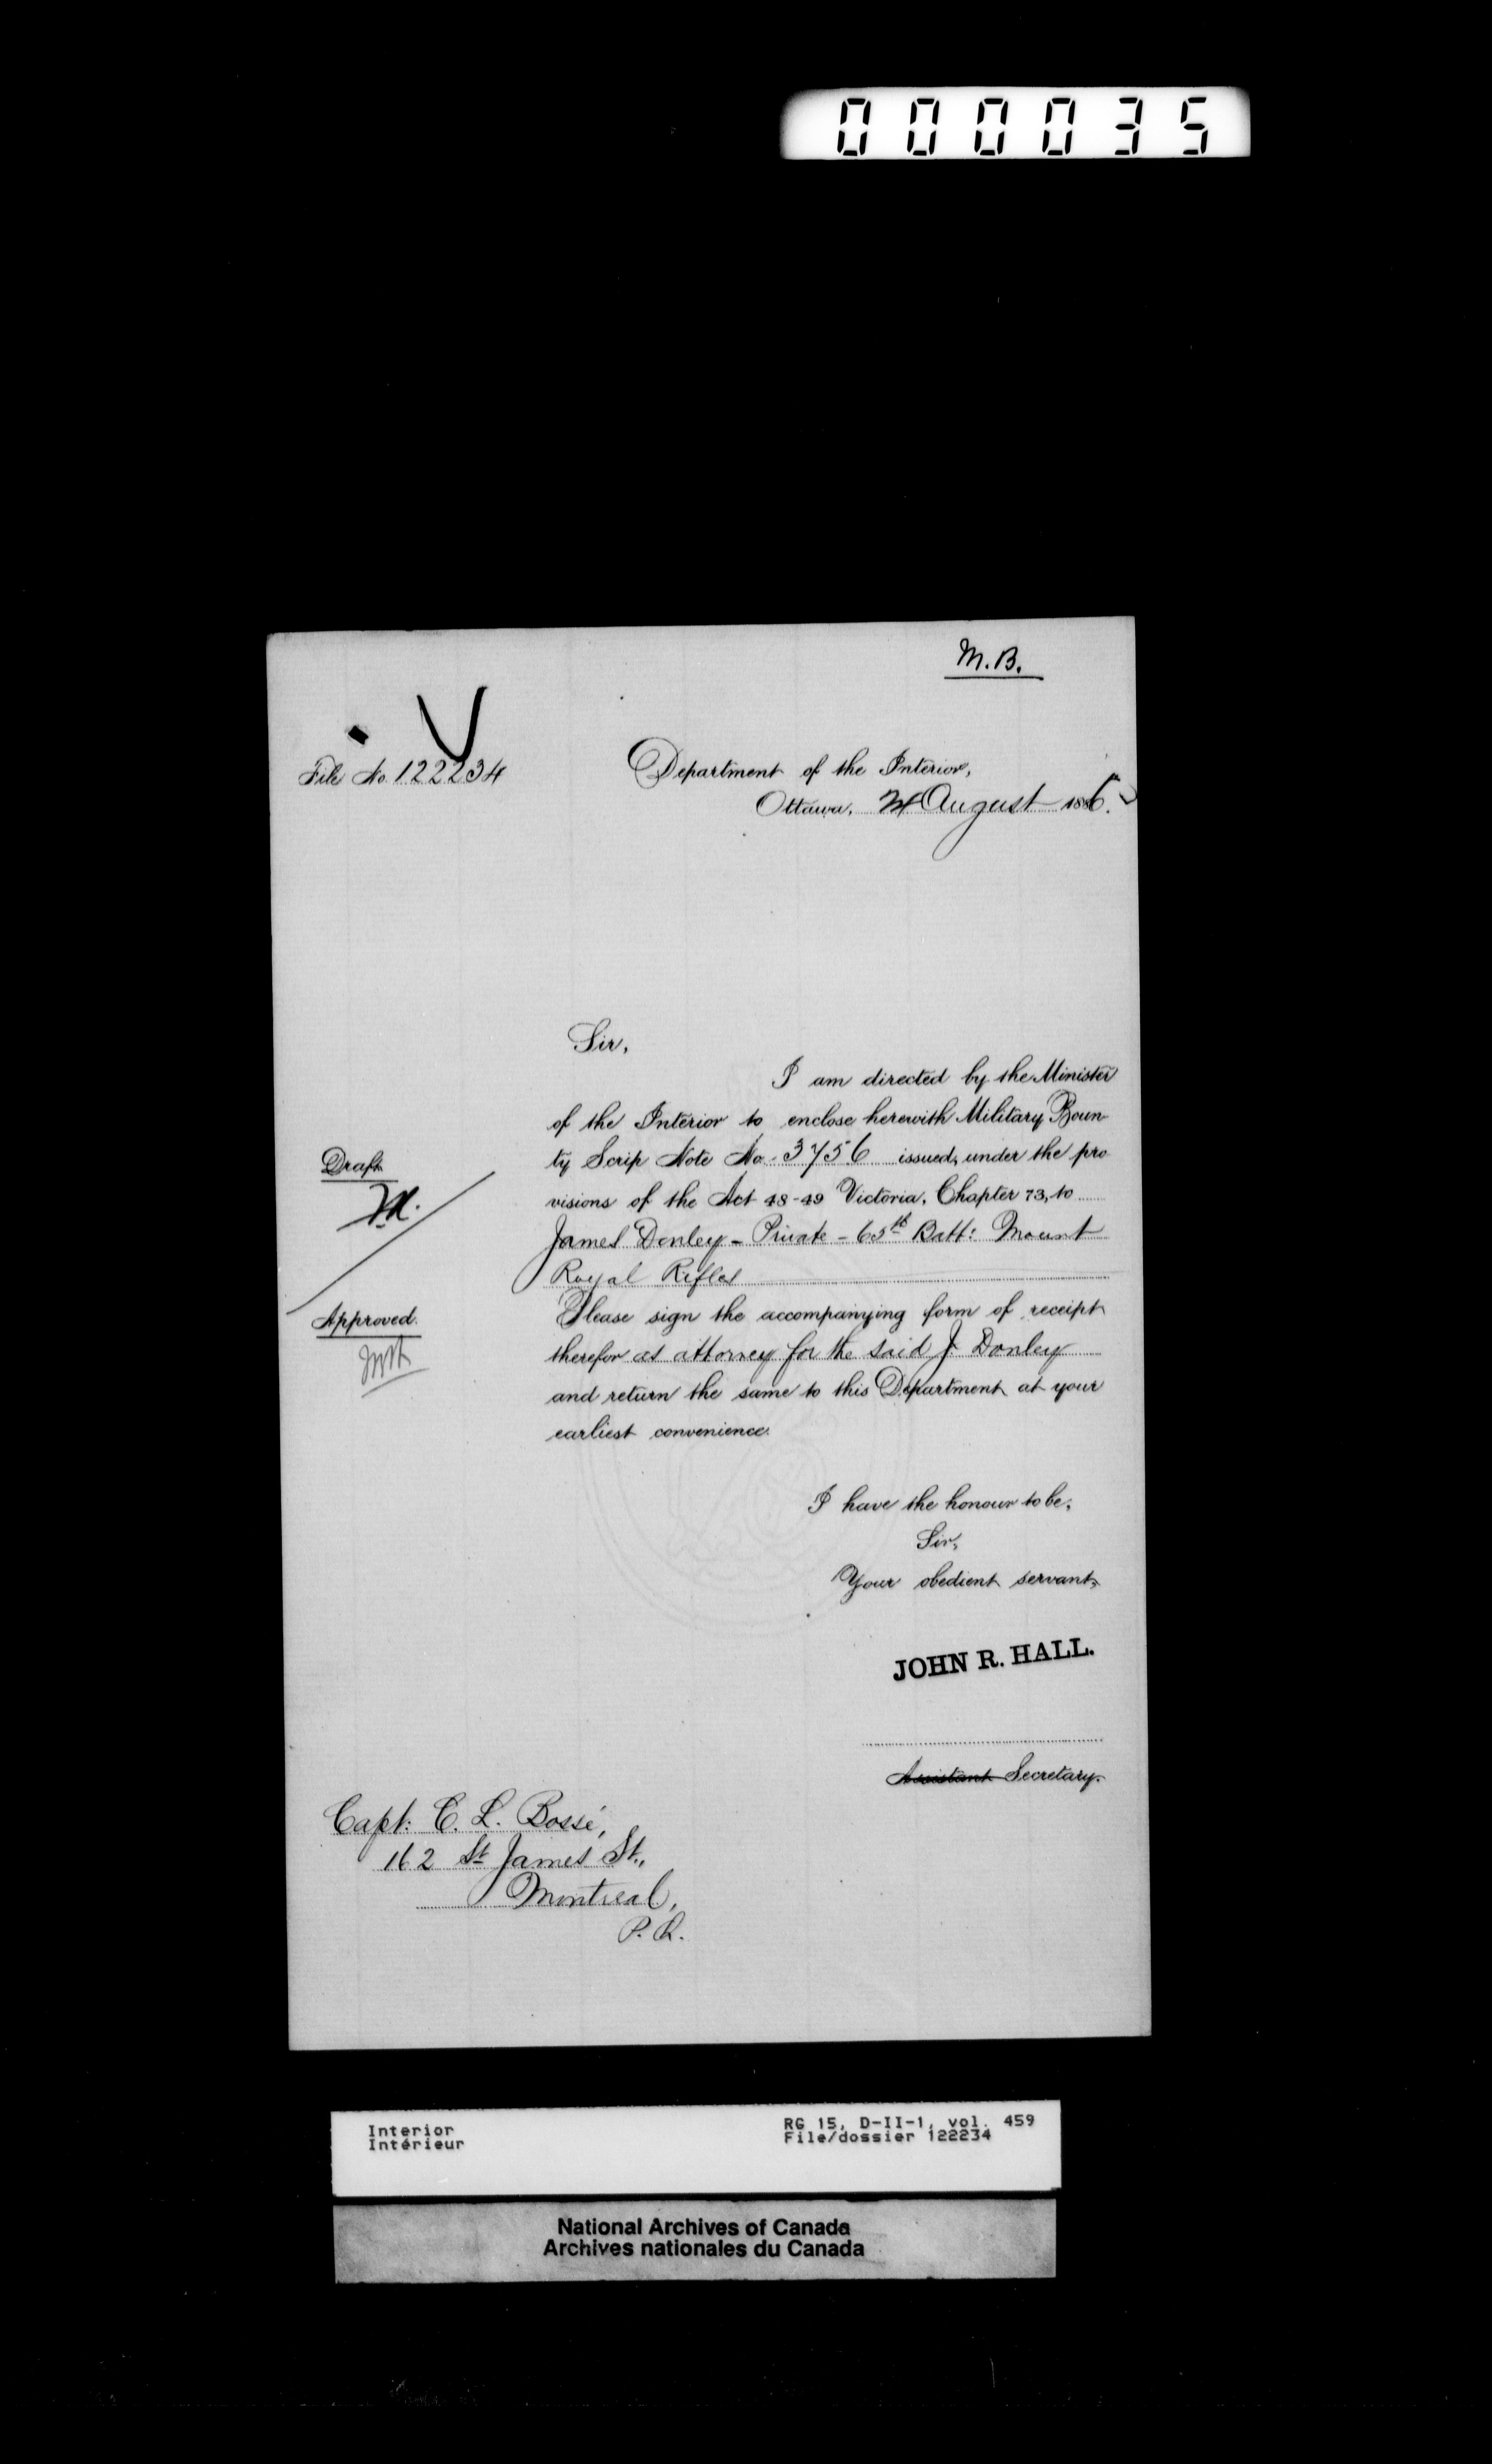 000035
M.B.
File No. 122234
Department of the Interior,
Ottawa, 24 August 1886.
Sir,
I am directed by the Minister
of the Interior to enclose herewith Military Boun-
ty Scrip Note No. 3756 issued, under the pro
visions of the Act 48-49 Victoria, Chapter 73, to
James Donley - Private - 65th Batt: Mount
Royal Rifles
Please sign the accompanying form of receipt
therefor as attorney for the said J. Donley
and return the same to this Department at your
earliest convenience.
Draft
Approved.
I have the honour to be,
Sir,
Your obedient servant,
JOHN R. HALL.
Assistant Secretary.
Capt: C. L. Bossé,
162 St James St.,
Montreal,
P.Q.
Interior
Intérieur
RG 15, D-II-1, vol. 459
File/dossier 122234
National Archives of Canada
Archives nationales du Canada